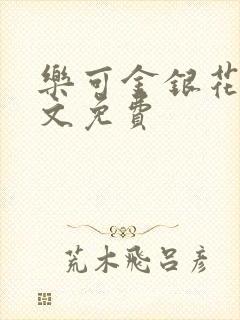 樂可金銀花
文免費
荒木飛呂彥